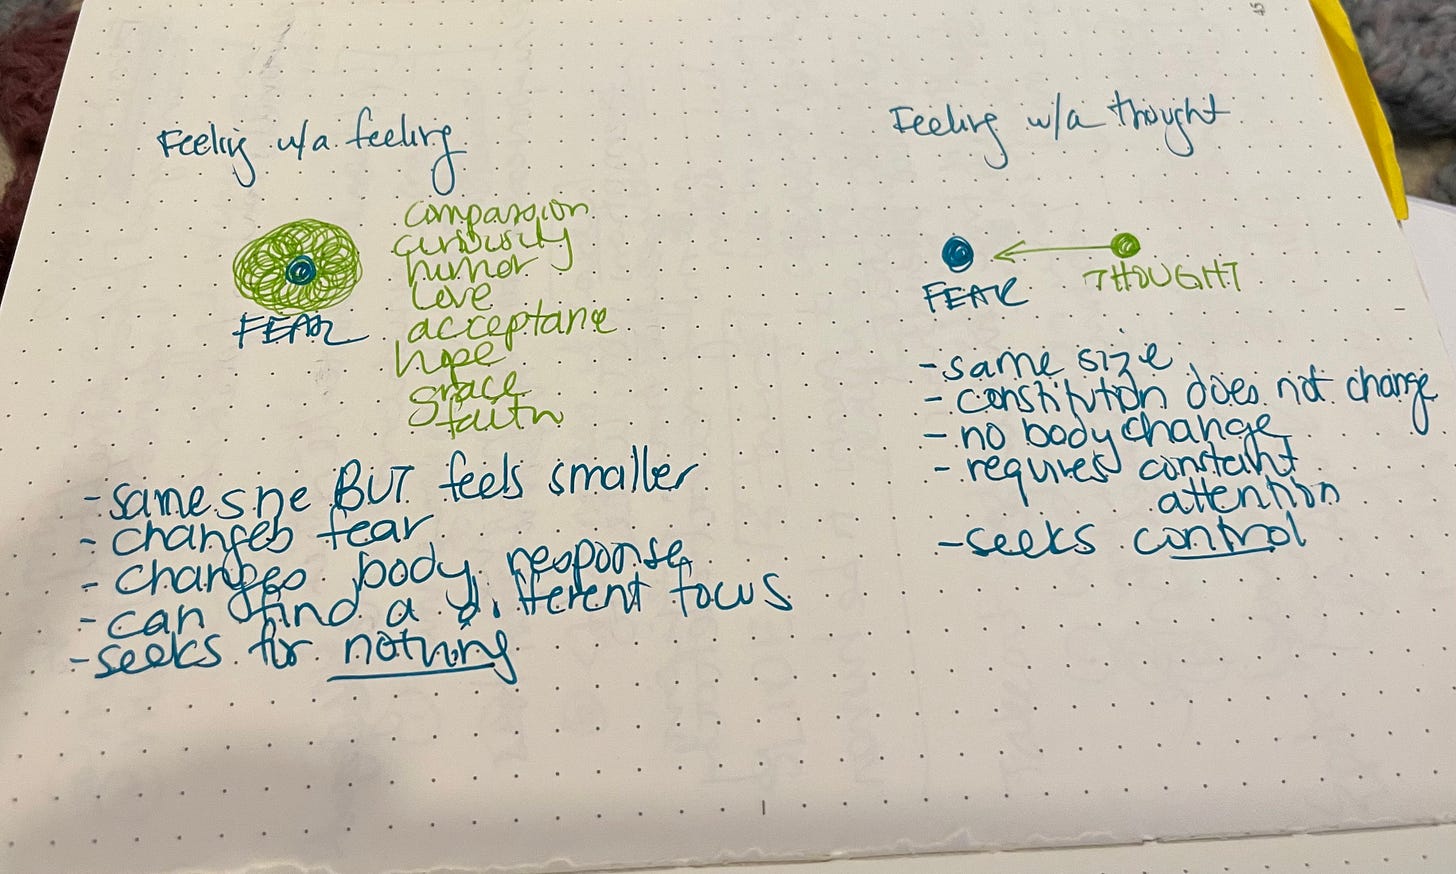 Feeling w/a feeling
compassion
curiosity
humor
love
acceptance
hope
space
faith
FEAR
- same size BUT feels smaller
- changes fear
- changes body response
- can find a different focus
- seeks for nothing
Feeling w/a thought
FEAR
THOUGHT
- same size
- constitution does not change
- no body change
- requires constant
attention
- seeks control
45